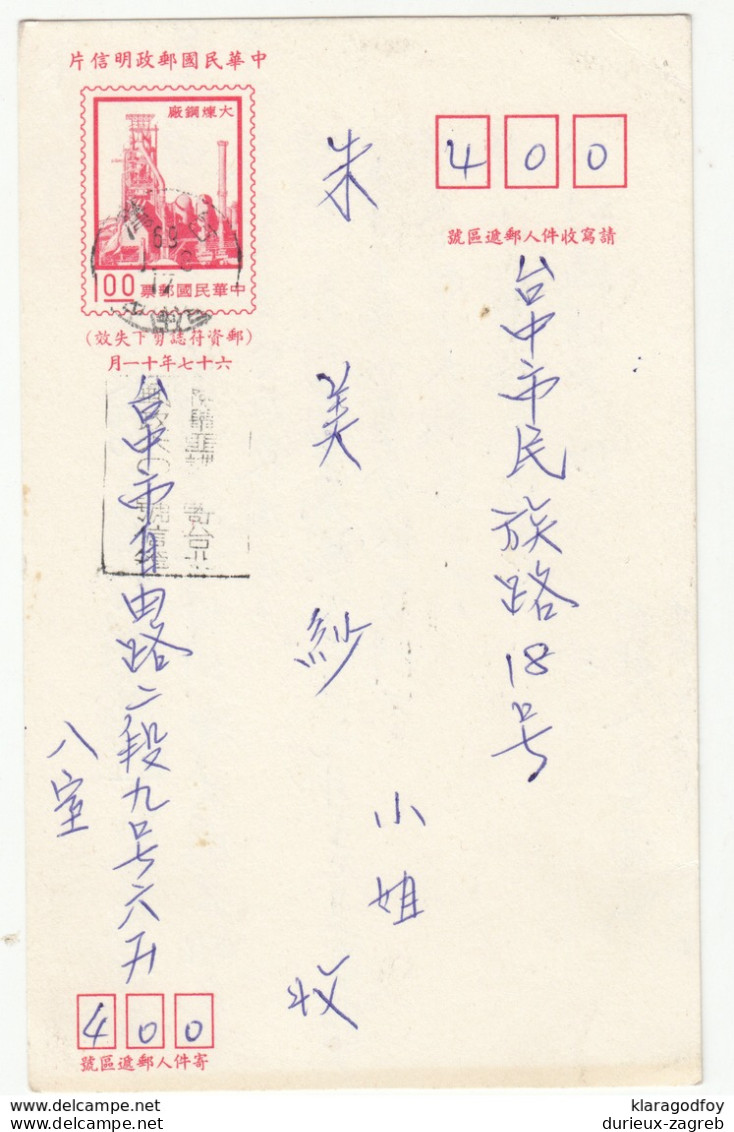 中華民國郵政明信片
大煉鋼廠
1.00
中華民國郵票
(郵資符誌剪下失效)
六十七年十一月
400
請寫收件人郵遞區號
台中市民族路18号
朱美紗小姐收
台中市自由路二段九号六F
八室
寄台北
信箱
400
寄件人郵遞區號
klaragodfoy
durieux-zagreb